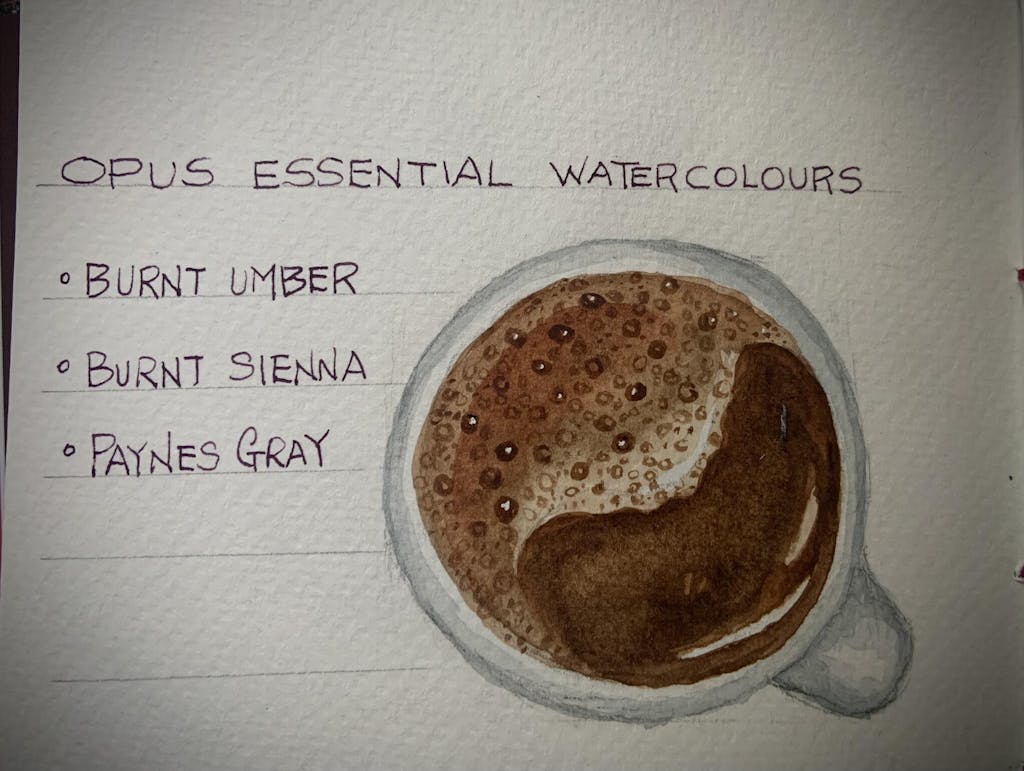 OPUS ESSENTIAL WATERCOLOURS
• BURNT UMBER
• BURNT SIENNA
• PAYNES GRAY